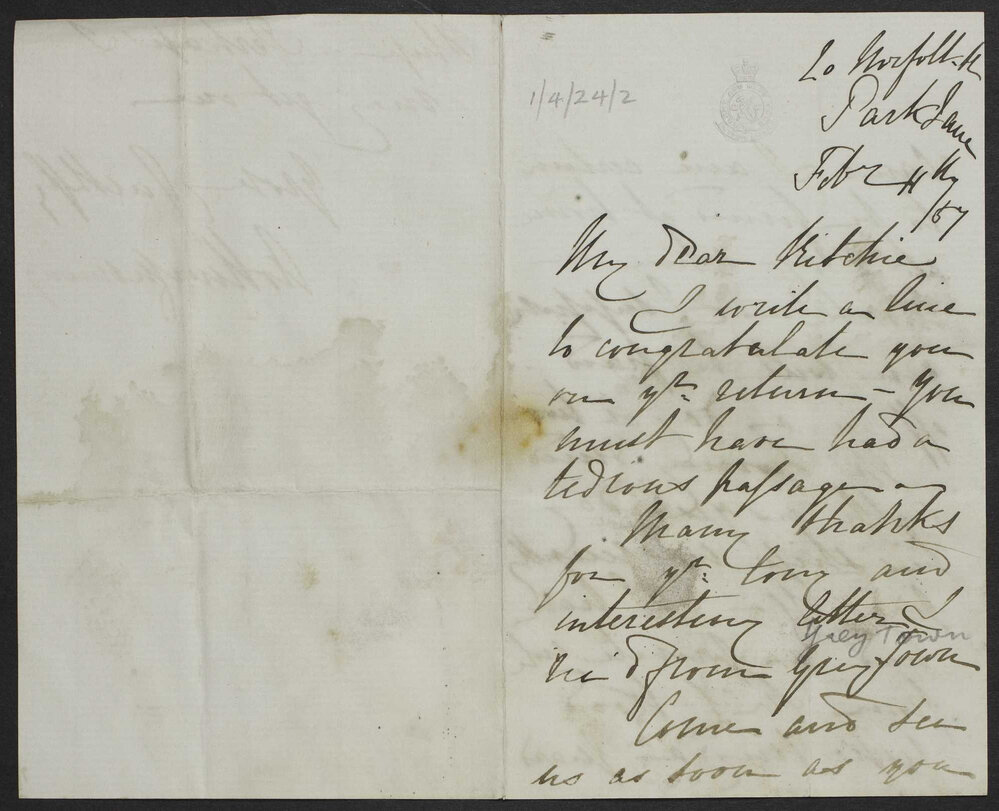 1/4/24/2
20 Norfolk St
Park Lane
Feby 11th
/67
My dear Ritchie
I write a line
to congratulate you
on yr. return – you
must have had a
tedious passage –
Many thanks
for yr. long and
interesting letter I
rec'd from Grey Town
Grey Town
Come and see
us as soon as you